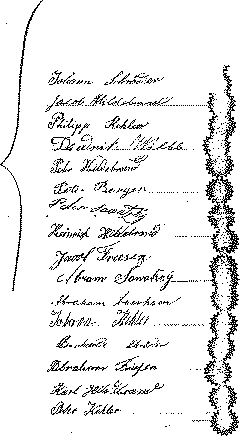 Johann Schröder
Jacob Hildebrand
Philipp Köhler
Diedrich
Peter Hildebrand
Peter Berger
Peter Sawatzky
Heinrich Hildebrand
Jacob Friesen
Abram Sawatzky
Abraham
Johann Köhler
Abraham Friesen
Karl Hildebrand
Peter Köhler